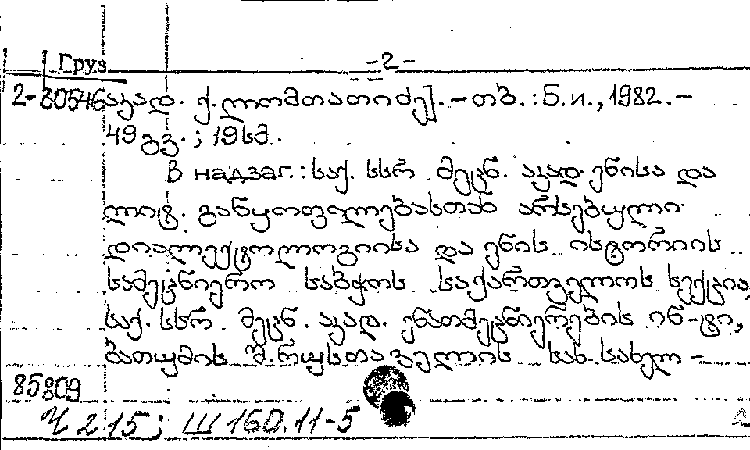 Груз -2-
2-80546 აკად. ქ. ლომთათიძე]. – თბ. : Б.и., 1982. –
49 გვ. ; 19 სმ.
В надзаг.: საქ. სსრ მეცნ. აკად. ენისა და
ლიტ. განყოფილებასთან არსებული
დიალექტოლოგიისა და ენის ისტორიის
სამეცნიერო საბჭოს საქართველოს სექცია,
საქ. სსრ მეცნ. აკად. ენათმეცნიერების ინ-ტი,
ბათუმის შ. რუსთაველის სახ. სახელ-
85809
Ч 215; Ш 160.11-5